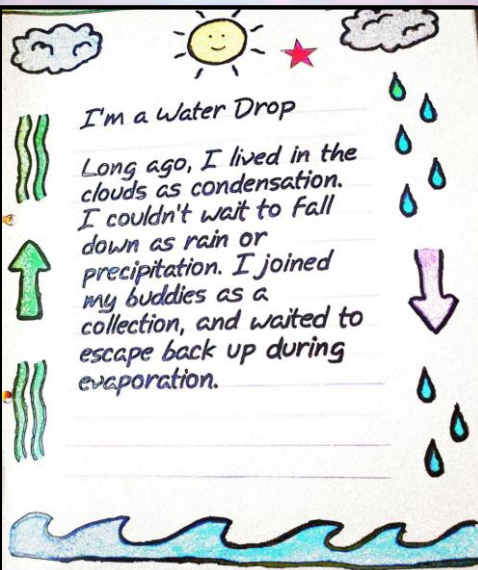 I'm a Water Drop
Long ago, I lived in the
clouds as condensation.
I couldn't wait to fall
down as rain or
precipitation. I joined
my buddies as a
collection, and waited to
escape back up during
evaporation.